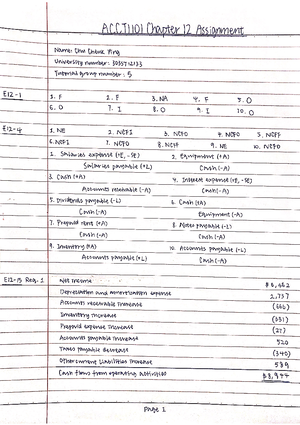 ACCT1101 Chapter 12 Assignment
University number: 3035712133
Tutorial group number: 5
E12-1 1. F 2. F 3. NA 4. F 5. O
6. O 7. I 8. O 9. I 10. O
E12-4 1. NE 2. NCFI 3. NCFO 4. NCFO 5. NCFF
6. NCFI 7. NCFO 8. NCFF 9. NE 10. NCFO
1. Salaries expense (+E, -SE) 2. Equipment (+A)
Salaries payable (+L) Cash (-A)
3. Cash (+A) 4. Interest expense (+E, -SE)
Accounts receivable (-A) Cash (-A)
5. Dividends payable (-L) 6. Cash (+A)
Cash (-A) Equipment (-A)
7. Prepaid rent (+A) 8. Notes payable (-L)
Cash (-A) Cash (-A)
9. Inventory (+A) 10. Accounts payable (-L)
Accounts payable (+L) Cash (-A)
E12-15 Req. 1 Net income
Depreciation and amortization expense 2,737
Accounts receivable increase
Inventory increase (331)
Prepaid expense increase (27)
Accounts payable increase 520
Taxes payable decrease (340)
Other current liabilities increase 589
Cash flows from operating activities
Page 1